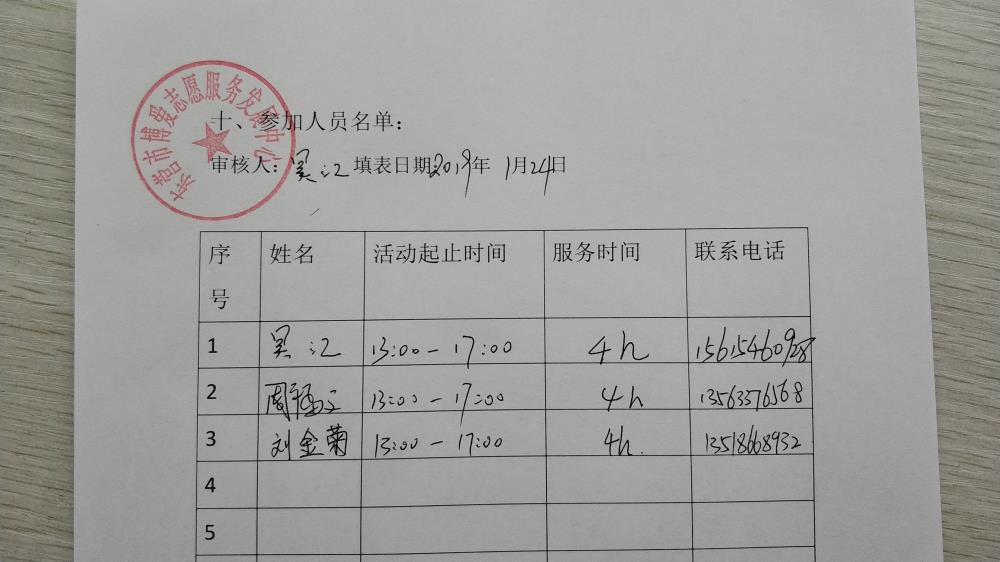 东营市博爱志愿服务发展中心
十、参加人员名单：
审核人：吴江 填表日期2019年 1月24日
序号 姓名 活动起止时间 服务时间 联系电话
1 吴江 13:00-17:00 4h 15615460928
2 周 13:00-17:00 4h 13563376568
3 刘金菊 13:00-17:00 4h. 13518668932
4
5